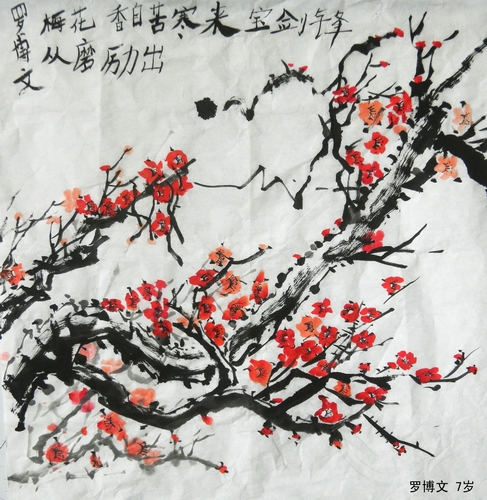 梅花 香自苦寒来 宝剑锋
从磨励出
罗博文
罗博文 7岁